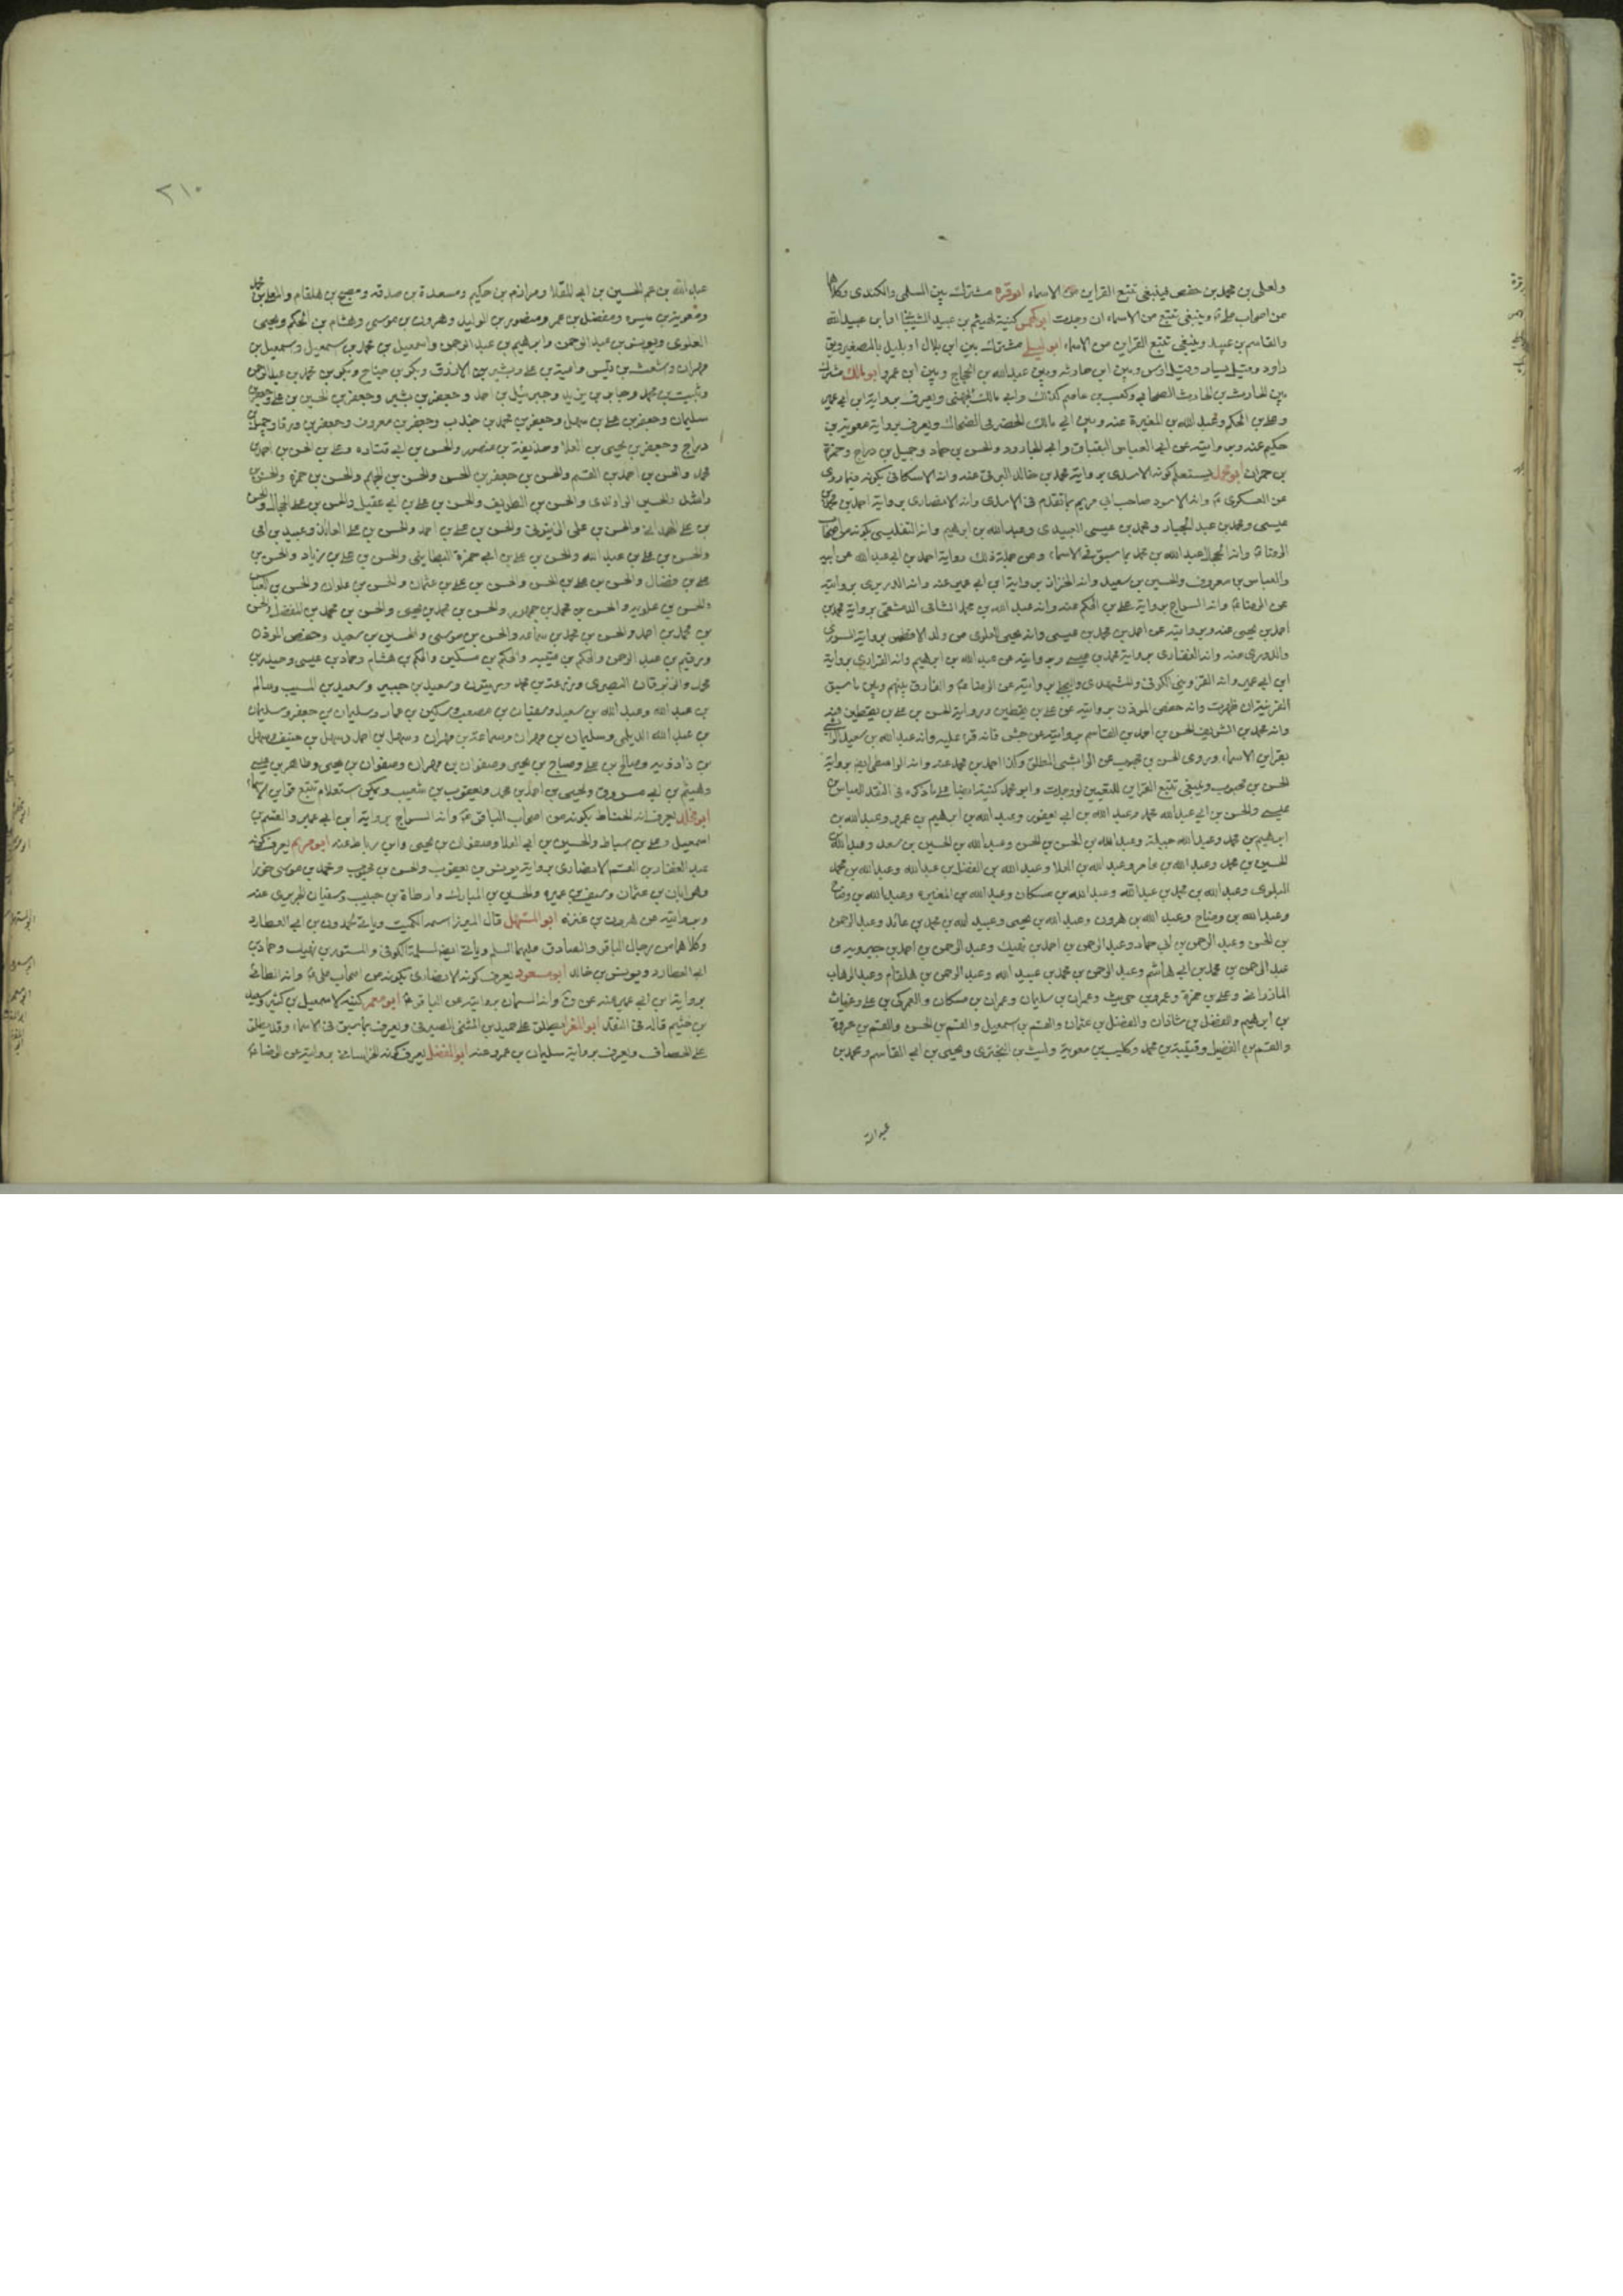 ولعلى بن محمد بن حفص فينبغى تتبع القراين من الاسماء ابو قره مشترك بين السلمى والكندى وكلاهما
من اصحاب وينبغى تتبع من الاسماء ان وجدت ابو كهمس كنية لهيثم بن عبيد الشيبانى او ابن عبيد الله
والقاسم بن عبيد وينبغى تتبع القراين من الاسماء ابو ليلى مشترك بين ابن بلال او بليل بالتصغير وبين
داود وقيل يسار وقيل اوس وبين ابن حارثه وبين عبد الله بن الحجاج وبين ابن عمرو ابو مالك مشترك
بين الحارث بن الحارث الصحابى وكعب بن عاصم كذلك وابى مالك الجهنى ويعرف برواية ابن ابى عمير
وعلى بن الحكم وعبد الله بن المغيرة عنه وبين ابى مالك الحضرمى الضحاك ويعرف برواية معوية بن
حكيم عنه وبروايته عن ابى العباس البقباق وابى الجارود والحسن بن حماد وجميل بن دراج وحمزة
بن حمران ابو محمد يستعلم كونه الاسدى برواية محمد بن خالد البرقى عنه وانه الاسكافى بكونه فيما روى
عن العسكرى ع وانه الاسود صاحب ابى مريم بما تقدم فى الاسدى وانه الانصارى برواية احمد بن محمد بن
عيسى ومحمد بن عبد الجبار ومحمد بن عيسى العبيدى وعبد الله بن ابراهيم وانه التفليسى بكونه من اصحاب
الرضا ع وانه الحجال عبد الله بن محمد بما سبق فى الاسماء ومن جملة ذلك رواية احمد بن ابى عبد الله عن ابيه
والعباس بن معروف والحسين بن سعيد وانه الخزاز برواية ابن ابى عمير عنه وانه الديرى بروايته
عن الرضا ع وانه السراج برواية على بن الحكم عنه وانه عبد الله بن محمد الشامى الدمشقى برواية محمد بن
احمد بن يحيى عنه وبروايته عن احمد بن محمد بن عيسى وانه يحيى العلوى من ولد الافطس برواية السورى
والدورى عنه وانه الغفارى برواية محمد بن عيسى وبروايته عن عبد الله بن ابراهيم وانه الفزارى برواية
ابن ابى عمير وانه القزوينى الكوفى والمشهدى والبجلى بروايته عن الرضا ع والفارق بينهم وبين ما سبق
القرينة ان ظهرت وانه حفص الموذن بروايته عن على بن يقطين وبرواية الحسن بن على بن يقطين عنه
وانه محمد بن الشريف الحسن بن احمد بن القاسم بروايته عن فانه قرء عليه وانه عبد الله بن سعيد الوابشى
بقراين الاسماء وبروى الحسن بن محبوب عن الوابشى المطلق وكذا احمد بن محمد عنه وانه الواسطى ايض برواية
الحسن بن محبوب وينبغى تتبع القراين للبقيه لو وجدت وابو محمد كنية ايضا على ما ذكره فى النقد للعباس بن
عيسى والحسن بن ابى عبد الله محمد وعبد الله بن ابى يعفور وعبد الله بن ابراهيم بن عمرو وعبد الله بن
ابراهيم بن محمد وعبد الله بن جبيلة وعبد الله بن الحسن بن الحسن وعبد الله بن الحسين بن سعد وعبد الله بن
الحسين بن محمد وعبد الله بن عامر وعبد الله بن العلا وعبد الله بن الفضل بن عبد الله وعبد الله بن محمد
البلوى وعبد الله بن محمد بن عبد الله وعبد الله بن مسكان وعبد الله بن المغيره وعبد الله بن وضاح
وعبد الله بن وضاح وعبد الله بن هرون وعبد الله بن يحيى وعبيد الله بن محمد بن عائد وعبد الرحمن
بن الحسن وعبد الرحمن بن ابى حماد وعبد الرحمن بن احمد بن نهيك وعبد الرحمن بن احمد بن جبرويه و
عبد الرحمن بن محمد بن ابى هاشم وعبد الرحمن بن محمد بن عبيد الله وعبد الرحمن بن هلقام وعبد الوهاب
الماذرائى وعلى بن حمزة وعمرو بن حريث وعمران بن سليمان وعمران بن مسكان والعمركى بن على وغياث
بن ابراهيم والفضل بن شاذان والفضل بن عثمان والقسم بن اسمعيل والقسم بن الحسن والقسم بن عروة
والقسم بن الفضيل وقتيبة بن محمد وكليب بن معوية وليث بن البخترى ويحيى بن ابى القاسم ومحمد بن
عبد الله
٢١٠
عبد الله بن عم الحسين بن ابى العلا ومرازم بن حكيم ومسعدة بن صدقه ومصبح بن هلقام والمعلى بن محمد
ومعوية بن ميسره ومفضل بن عمر ومنصور بن الوليد وهرون بن موسى وهشام بن الحكم ويحيى
العلوى ويونس بن عبد الرحمن وابراهيم بن عبد الرحمن واسمعيل بن محمد بن اسمعيل واسمعيل بن
مهران واشعث بن قيس وامية بن على وبشير بن الازرق وبكر بن جناح وبكر بن محمد بن عبد الرحمن
وثبيت بن محمد وجابر بن يزيد وجبرئيل بن احمد وجعفر بن بشير وجعفر بن الحسين بن على وجعفر بن
سليمان وجعفر بن على بن سهل وجعفر بن محمد بن جندب وجعفر بن معروف وجعفر بن ورقا وجميل بن
دراج وجعفر بن يحيى بن العلا وحذيفة بن منصور والحسن بن ابى قتاده وعلى بن الحسن بن احمد بن
محمد والحسن بن احمد بن القسم والحسن بن جعفر بن الحسن والحسن بن الجهم والحسن بن حمزه والحسن بن
راشد والحسين الراوندى والحسن بن الظريف والحسن بن على بن ابى عقيل والحسن بن على الحجال والحسن
بن على الهمدانى والحسن بن على الزيتونى والحسن بن على بن احمد والحسن بن على العابد وعبيد بن
والحسن بن على بن عبد الله والحسن بن على بن ابى حمزة البطاينى والحسن بن على بن زياد والحسن بن
على بن فضال والحسن بن على بن الحسن والحسن بن على بن عثمان والحسن بن علوان والحسن بن العباس
والحسن بن علويه والحسن بن محمد بن جمهور والحسن بن محمد بن يحيى والحسن بن محمد بن الفضل والحسن
بن محمد بن احمد والحسن بن محمد بن سماعه والحسن بن موسى والحسين بن سعيد وحفص الموذن
ورقيم بن عبد الرحمن والحكم بن عتيبه والحكم بن مسكين والحكم بن هشام وحماد بن عيسى وحيدر بن
محمد والزبرقان البصرى وزرعة بن محمد وزيتون وسعيد بن جبير وسعيد بن المسيب وسالم
بن عبد الله وعبد الله بن سعيد وسفيان بن مصعب وسكين بن عمار وسليمان بن جعفر وسليمان
بن عبد الله الديلمى وسليمان بن مهران وسماعة بن مهران وسهل بن احمد وسهل بن حنيف وسهل
بن زادويه وصالح بن على وصباح بن يحيى وصفوان بن مهران وصفوان بن يحيى وطاهر بن عيسى
وهيثم بن ابى مسروق ويحيى بن احمد بن محمد ويعقوب بن شعيب ويمكن استعلام تتبع قراين الاسماء
ابو مخلد يعرف انه الخياط بكونه من اصحاب الباقر ع وانه السراج برواية ابن ابى عمير والقسم بن
اسمعيل وعلى بن اسباط والحسين بن ابى العلا وصفوان بن يحيى وابن رباط عنه ابو مريم يعرف كونه
عبد الغفار بن القسم الانصارى برواية يونس بن يعقوب والحسن بن محبوب ومحمد بن موسى خورا
وابان بن عثمان وسيف بن عميره والحسين بن المبارك وارطاة بن حبيب وسفيان الجريرى عنه
وبروايته عن هرون بن عنتره ابو المستهل قال الميرزا اسمه الكميت وياتى لحمدون بن ابى العطارد
وكلاهما من رجال الباقر والصادق عليهما السلم وياتى ايض لسلمة الكوفى والمستورد بن نهيك وحماد بن
ابى العطارد ويونس بن خالد ابو مسعود يعرف كونه الانصارى بكونه من اصحاب على ع وانه الطائى
برواية ابن ابى عمير عنه عن وانه السمان بروايته عن الباقر ع ابو معمر كنية لاسمعيل بن كثير وسعيد
بن خثيم قاله فى النقد ابو المغرا يطلق على حميد بن المثنى الصيرفى ويعرف بما سبق فى الاسماء وقد يطلق
على الخصاف ويعرف برواية سليمان بن عمرو عنه ابو الفضل يعرف كونه الخراسانى بروايته عن الرضا ع